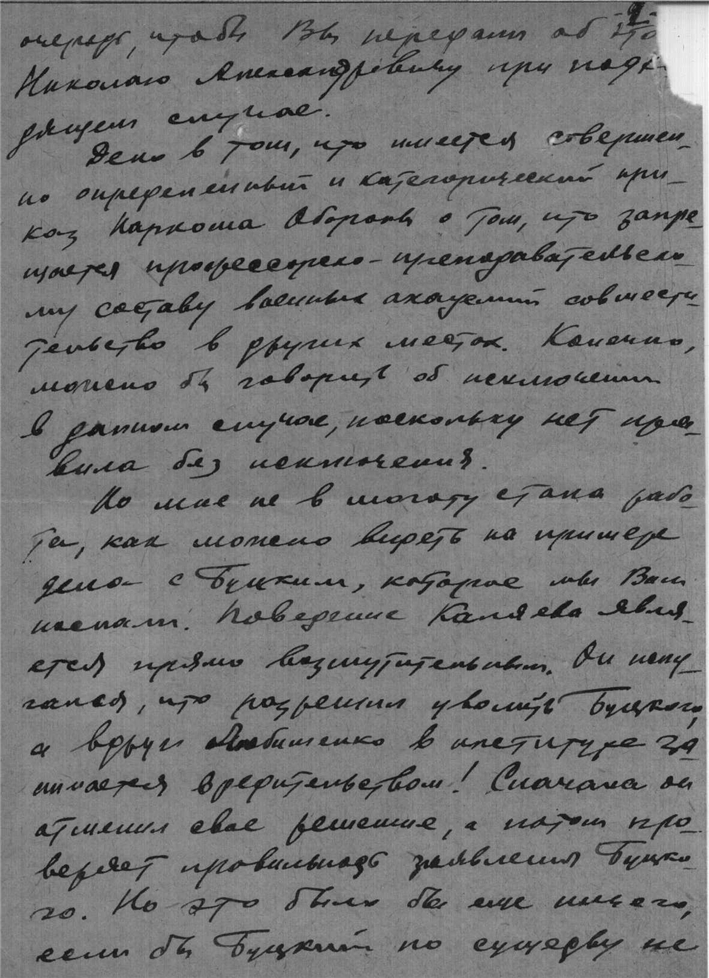 очередь, чтобы Вы передали об это
Николаю Александровичу при подхо-
дящем случае.
Дело в том, что имеется совершен-
но определенный и категорический при-
каз Наркома Обороны о том, что запре-
щается профессорско-преподавательско-
му составу военных академий совмести-
тельство в других местах. Конечно,
можно бы говорить об исключении
в данном случае, поскольку нет пра-
вила без исключения.
Но мне не в моготу стала рабо-
та, как можно видеть на примере
дела с Буцким, которое мы Вам
послали. Поведение Каляева явля-
ется прямо возмутительным. Он испу-
гался, что разрешил уволить Буцкого,
а вдруг Любименко в институте за-
нимается вредительством! Сначала он
отменил свое решение, а потом про-
веряет правильность заявления Буцко-
го. Но это было бы еще ничего,
если бы Буцкий по существу не